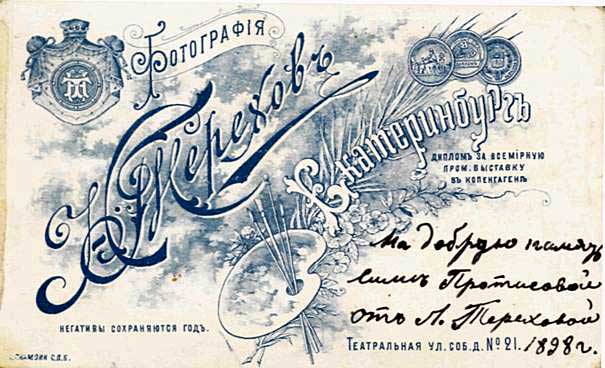 Фотографія
Н. Тереховъ
Екатеринбургъ
ДИПЛОМЪ ЗА ВСЕМІРНУЮ
ПРОМ. ВЫСТАВКУ
ВЪ КОПЕНГАГЕНѢ
На добрую память
Протисовой
отъ Л. Тереховой
1898 г.
НЕГАТИВЫ СОХРАНЯЮТСЯ ГОДЪ.
ТЕАТРАЛЬНАЯ УЛ. СОБ. Д. № 21.